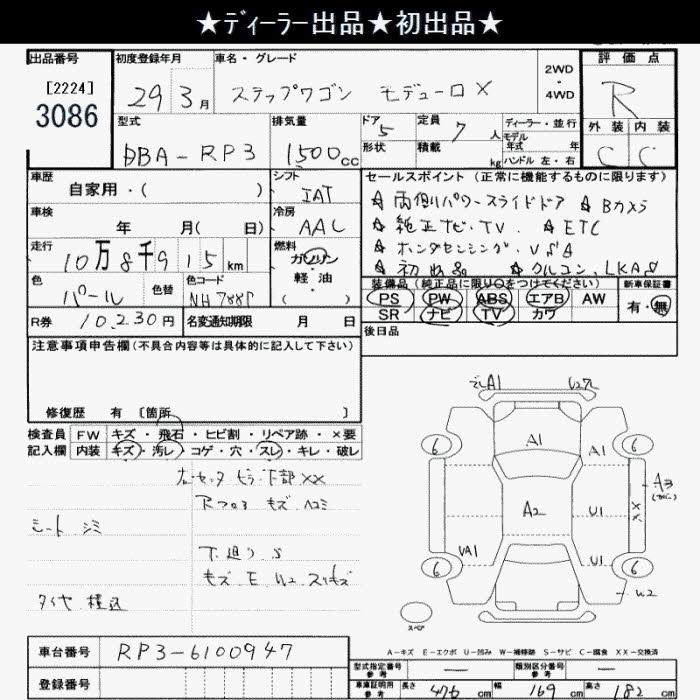 ★ディーラー出品★初出品★
出品番号
[2224]
3086
初度登録年月
29 3月
車名・グレード
ステップワゴン モデューロX
2WD
・
4WD
評価点
R
外装 内装
C C
型式
DBA-RP3
排気量
1500cc
ドア 5
形状
定員 7 人
積載 kg
ディーラー・並行
モデル
年式 年
ハンドル 左・右
車歴
自家用・( )
シフト
IAT
車検
年 月( 日)
冷房
AAC
走行
10万8千915km
燃料
ガソリン
・
軽油
( )
色
パール
色替
色コード
NH788P
R券 10,230円
名変通知期限 月 日
セールスポイント(正常に機能するものに限ります)
☆両側パワースライドドア ☆Bカメラ
☆純正ナビ・TV ☆ETC
☆ホンダセンシング・VSA
☆初出品 ☆クルコン、LKAS
装備品(純正品に限り○をつけてください)
PS PW ABS エアB AW
SR ナビ TV カワ
新車保証書
有・無
後日品
注意事項申告欄(不具合内容等は具体的に記入して下さい)
修復歴 有 [箇所 ]
検査員
記入欄
FW キズ・飛石・ヒビ割・リペア跡・×要
内装 キズ・汚レ・コゲ・穴・スレ・キレ・破レ
右センタピラー下部××
Rフロア キズ ヘコミ
シート シミ
下廻り S
キズ E U2 スリキズ
タイヤ積込
A1 U27
6 A1 A1 6
A3
××
A2 U1
UA1 U1
6 6
U2
スペア
A-キズ E-エクボ U-凹み W-補修跡 S-サビ C-腐食 XX-交換済
車台番号 RP3-6100947
登録番号
型式指定番号
参考
―
類別区分番号
参考
―
車庫証明用
参考
長さ 476 cm 幅 169 cm 高さ 182 cm